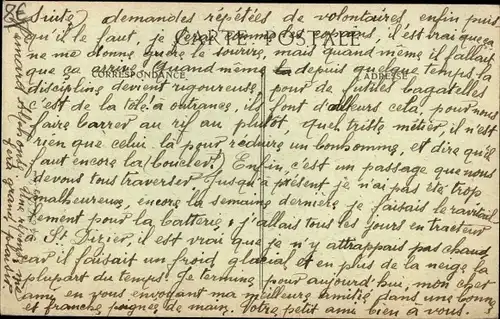 Suite, demandes répétées de volontaires, enfin puis
qu'il le faut, je ferai comme les copains, il est vrai que ça
CARTE POSTALE
ne me donne guère le sourire, mais quand même il fallait
que ça arrive. Quand même depuis quelque temps la
CORRESPONDANCE
ADRESSE
discipline devient rigoureuse, pour de futiles bagatelles
c'est de la tôle à outrance, ils font d'ailleurs cela pour nous
faire barrer au rif au plutôt, quel triste métier, il n'est
rien que celui là pour réduire un bonhomme, et dire qu'il
faut encore la boucler! Enfin, c'est un passage que nous
devons tous traverser. Jusqu'à présent je n'ai pas été trop
malheureux, encore la semaine dernière je faisais le ravitail
lement pour la batterie, j'allais tous les jours en tracteur
à St Dizier, il est vrai que je n'y attrapais pas chaud
car il faisait un froid glacial et en plus de la neige la
plupart du temps! Je termine pour aujourd'hui, mon cher
ami en vous envoyant ma meilleure amitié dans une bonne
et franche poignée de main. Votre petit ami bien à vous.